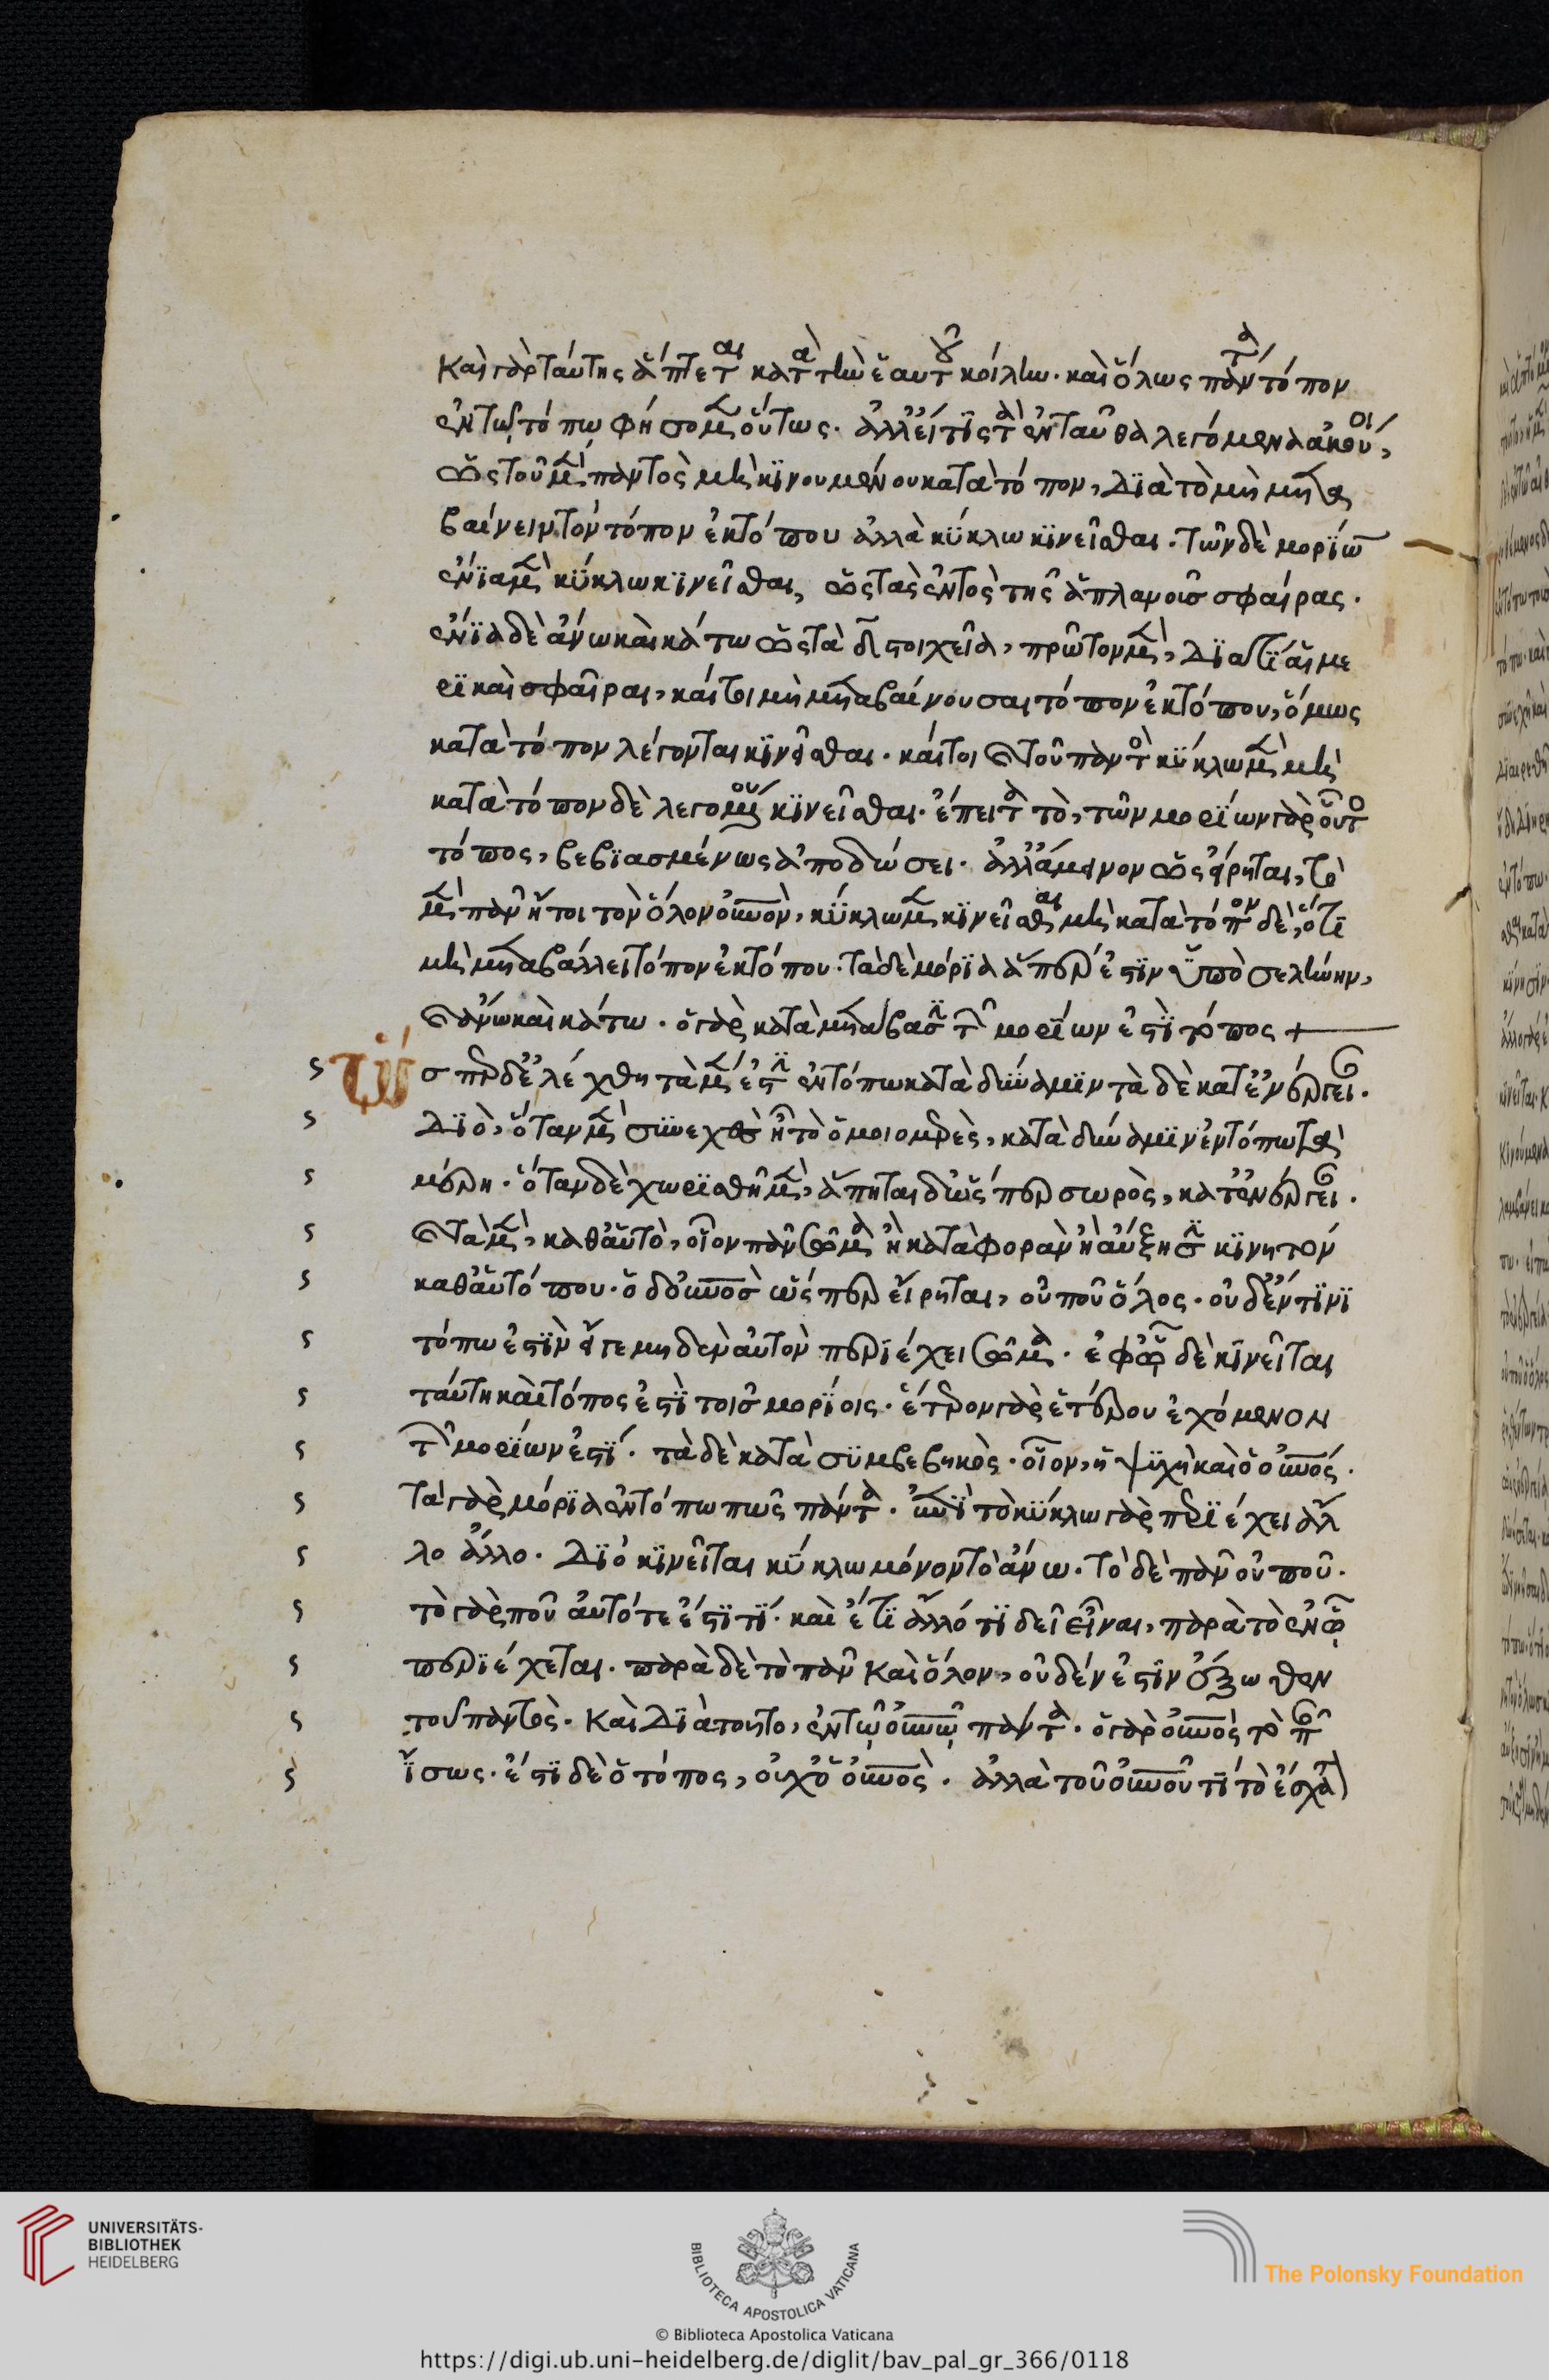 καὶ γὰρ ταύτης ἅπτεται κατὰ τὴν ἑαυτοῦ κοίλην. καὶ ὅλως πάντα τόπον
ἐν τῷ τόπῳ φήσομεν οὕτως. ἀλλ' εἴ τις τὰ ἐνταῦθα λεγόμενα ἀκούοι,
ὡς τοῦ μὲν παντὸς μὴ κινουμένου κατὰ τόπον, διὰ τὸ μὴ μετα
βαίνειν τὸν τόπον ἐκ τόπου ἀλλὰ κύκλω κινεῖσθαι. τῶν δὲ μορίων
ἔνια μὲν κύκλω κινεῖσθαι, ὡς τὰς ἐντὸς τῆς ἀπλανοῦς σφαίρας.
ἔνια δὲ ἄνω καὶ κάτω ὡς τὰ δ στοιχεῖα, πρῶτον μὲν, διατί αἱ με
ρικαὶ σφαῖραι, καίτοι μὴ μεταβαίνουσαι τόπον ἐκ τόπου, ὅμως
κατὰ τόπον λέγονται κινεῖσθαι. καίτοι καὶ τοῦ παντὸς κύκλω μὲν μὴ
κατὰ τόπον δὲ λεγομένου κινεῖσθαι. ἔπειτα τὸ, τῶν μορίων γὰρ οὗτος
τόπος, βεβιασμένως ἀποδώσει. ἀλλ' ἄμεινον ὡς εἴρηται, τὸ
μὲν πᾶν ἤτοι τὸν ὅλον οὐνον, κύκλω μὲν κινεῖσθαι μὴ κατὰ τόπον δὲ, ὅτι
μὴ μεταβάλλει τόπον ἐκ τόπου. τὰ δὲ μόρια ἅπερ ἐστὶν ὑπὸ σελήνην,
καὶ ἄνω καὶ κάτω. ὁ γὰρ κατὰ μετάβασιν τῶν μορίων ἐστὶ τόπος +
ὥσπερ δ' ἐλέχθη τὰ μέν ἐστιν ἐν τόπω κατὰ δύναμιν τὰ δὲ κατ' ἐνέργειαν.
διὸ, ὅταν μὲν συνεχὲς ᾖ τὸ ὁμοιομερὲς, κατὰ δύναμιν ἐν τόπω τὰ
μέρη. ὅταν δὲ χωρισθῆ μὲν, ἅπτηται δ' ὥσπερ σωρὸς, κατ' ἐνέργειαν.
καὶ τὰ μὲν, καθ' αὑτὸ, οἷον πᾶν σῶμα ἢ κατὰ φορὰν ἢ αὔξησιν κινητὸν
καθ' αὑτό που. ὁ δ' οὐνος ὥσπερ εἴρηται, οὔ που ὅλος. οὐδ' ἔν τινι
τόπω ἐστὶν εἴ γε μηδὲν αὐτὸν περιέχει σῶμα. ἐφ' ᾧ δὲ κινεῖται
ταύτη καὶ τόπος ἐστὶ τοῖς μορίοις. ἕτερον γὰρ ἑτέρου ἐχόμενον
τῶν μορίων ἐστί. τὰ δὲ κατὰ συμβεβηκὸς. οἷον, ἡ ψυχὴ καὶ ὁ οὐνος.
τὰ γὰρ μόρια ἐν τόπω πως πάντα. ἐπὶ τὸ κύκλω γὰρ περιέχει ἄλ
λο ἄλλο. διὸ κινεῖται κύκλω μόνον τὸ ἄνω. τὸ δὲ πᾶν οὔ που.
τὸ γὰρ ποῦ αὐτό τε ἔστι τί. καὶ ἔτι ἄλλό τι δεῖ εἶναι, παρὰ τὸ ἐν ᾧ
περιέχεται. παρὰ δὲ τὸ πᾶν καὶ ὅλον, οὐδέν ἐστιν ἔξωθεν
τοῦ παντὸς. καὶ διὰ τοῦτο, ἐν τῷ οὐνῷ πάντα. ὁ γὰρ οὐνος τὸ πᾶν
ἴσως. ἔστι δὲ ὁ τόπος, οὐχ' ὁ οὐνος. ἀλλὰ τοῦ οὐνου τι τὸ ἔσχατον
UNIVERSITÄTS-
BIBLIOTHEK
HEIDELBERG
BIBLIOTECA APOSTOLICA VATICANA
The Polonsky Foundation
© Biblioteca Apostolica Vaticana
https://digi.ub.uni-heidelberg.de/diglit/bav_pal_gr_366/0118